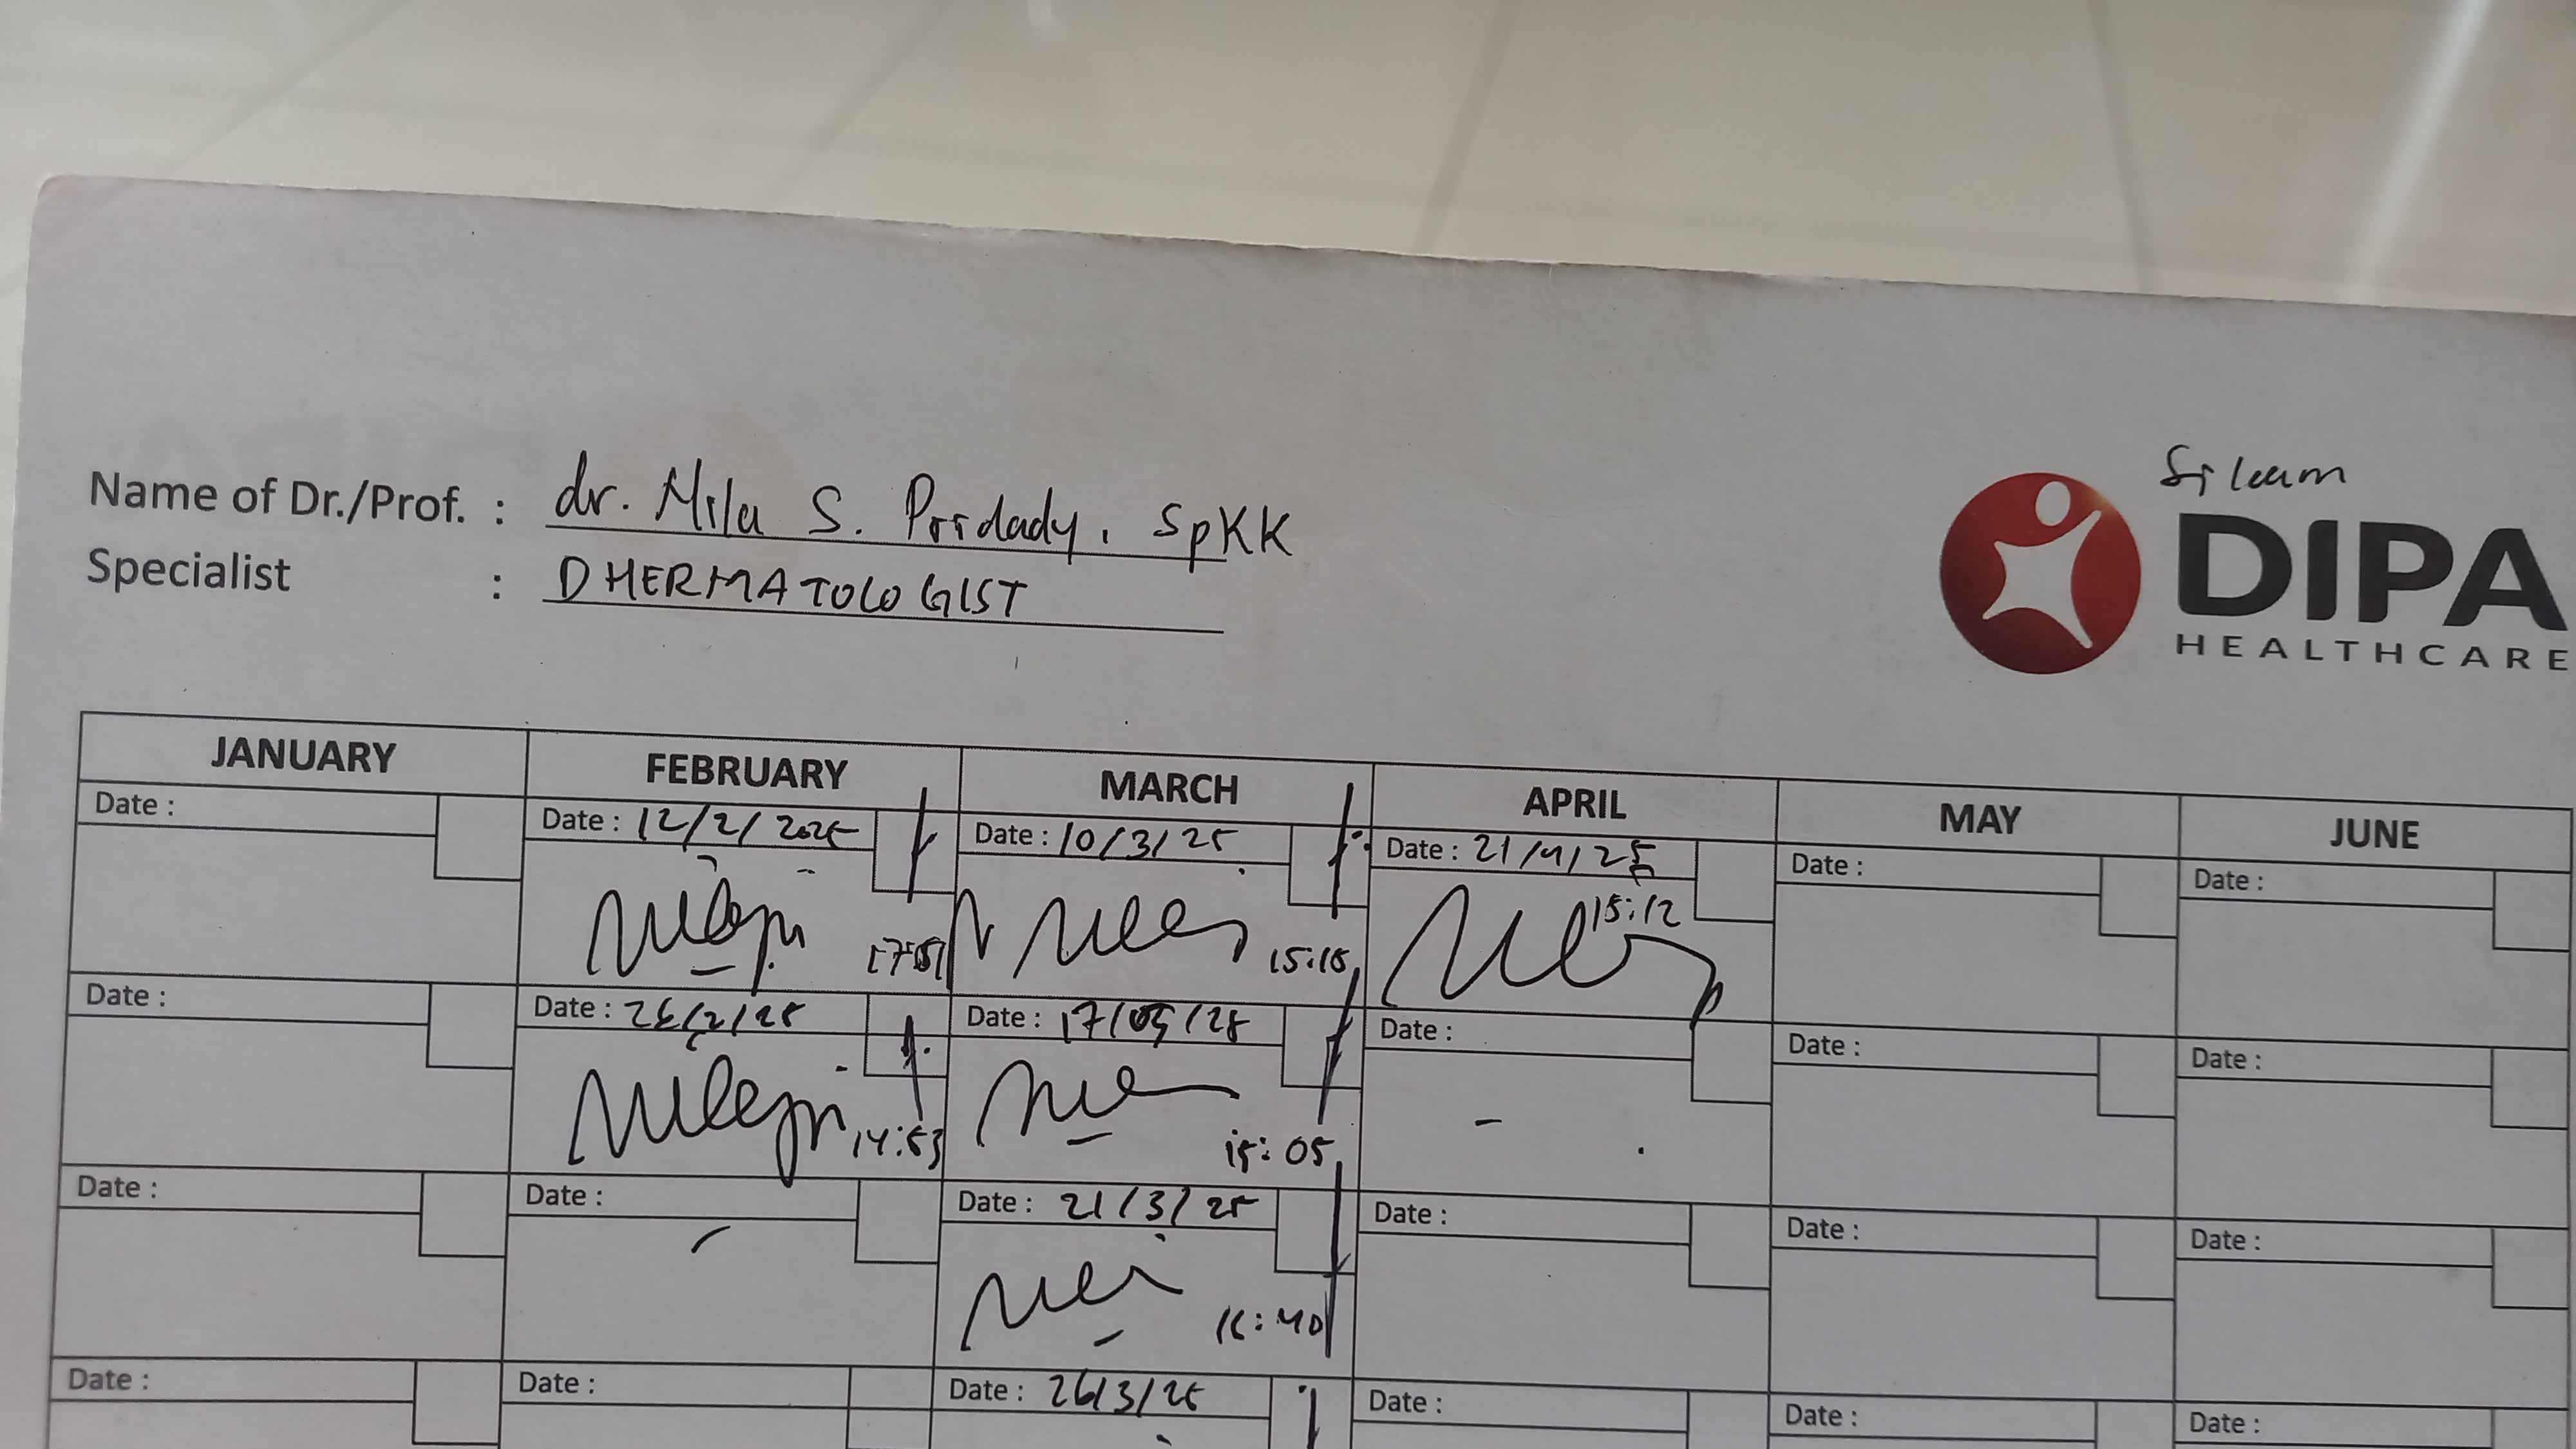 Siloam
Name of Dr./Prof. : dr. Mila S. , SpKK
Specialist : DHERMATOLOGIST
DIPA
HEALTHCARE
JANUARY FEBRUARY MARCH APRIL MAY JUNE
Date : Date : 12/2/2025 Date : 10/3/25 Date : 21/4/25 Date : Date :
15:15 15:12
Date : Date : 26/2/25 Date : 17/03/25 Date : Date : Date :
14:53 15:05
Date : Date : Date : 21/3/25 Date : Date : Date :
16:40
Date : Date : Date : 26/3/25 Date : Date : Date :